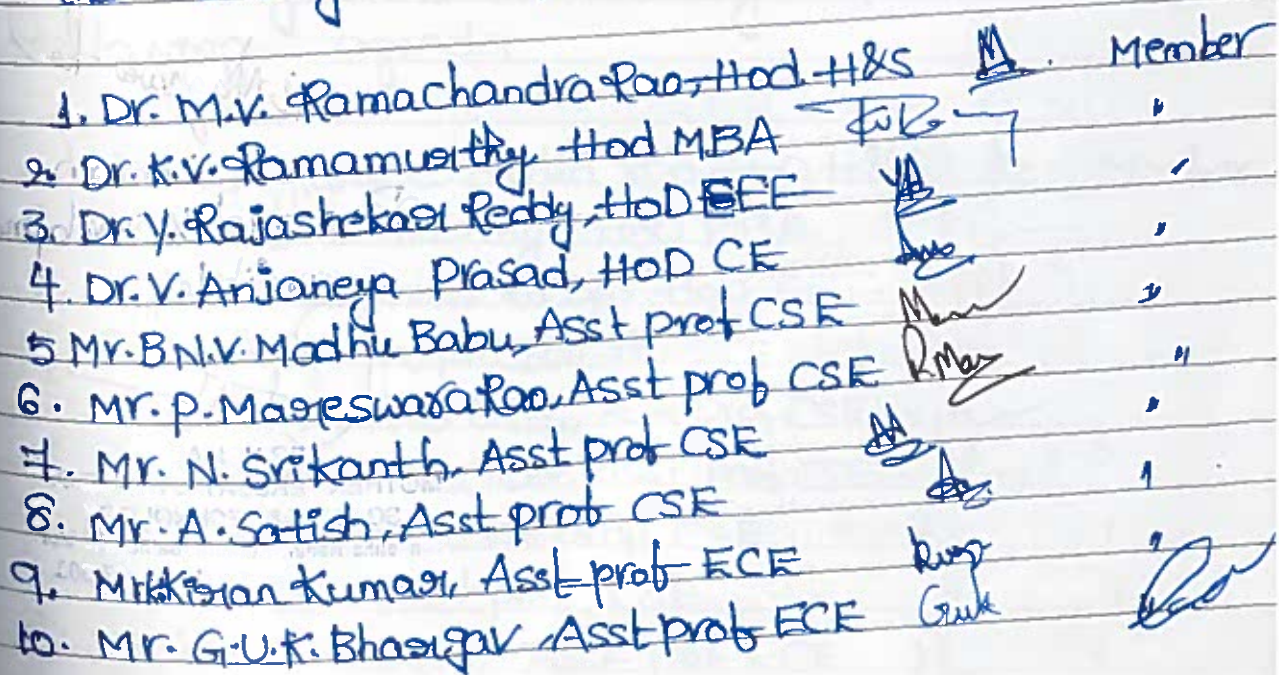 1. Dr. M.V. RamaChandra Rao, Hod H&S Member
2. Dr. K.V. Ramamurthy Hod MBA "
3. Dr. Y. Rajashekar Reddy, HoD EEE "
4. Dr. V. Anjaneya Prasad, HOD CE "
5 Mr. B.N.V. Madhu Babu, Asst prof CSE "
6. Mr. P. Mareswara Rao, Asst prof CSE "
7. Mr. N. Srikanth, Asst prof CSE "
8. Mr. A. Satish, Asst prof CSE "
9. Mr. K. Kiran Kumar, Asst prof ECE "
10. Mr. G.U.K. Bhargav, Asst prof ECE